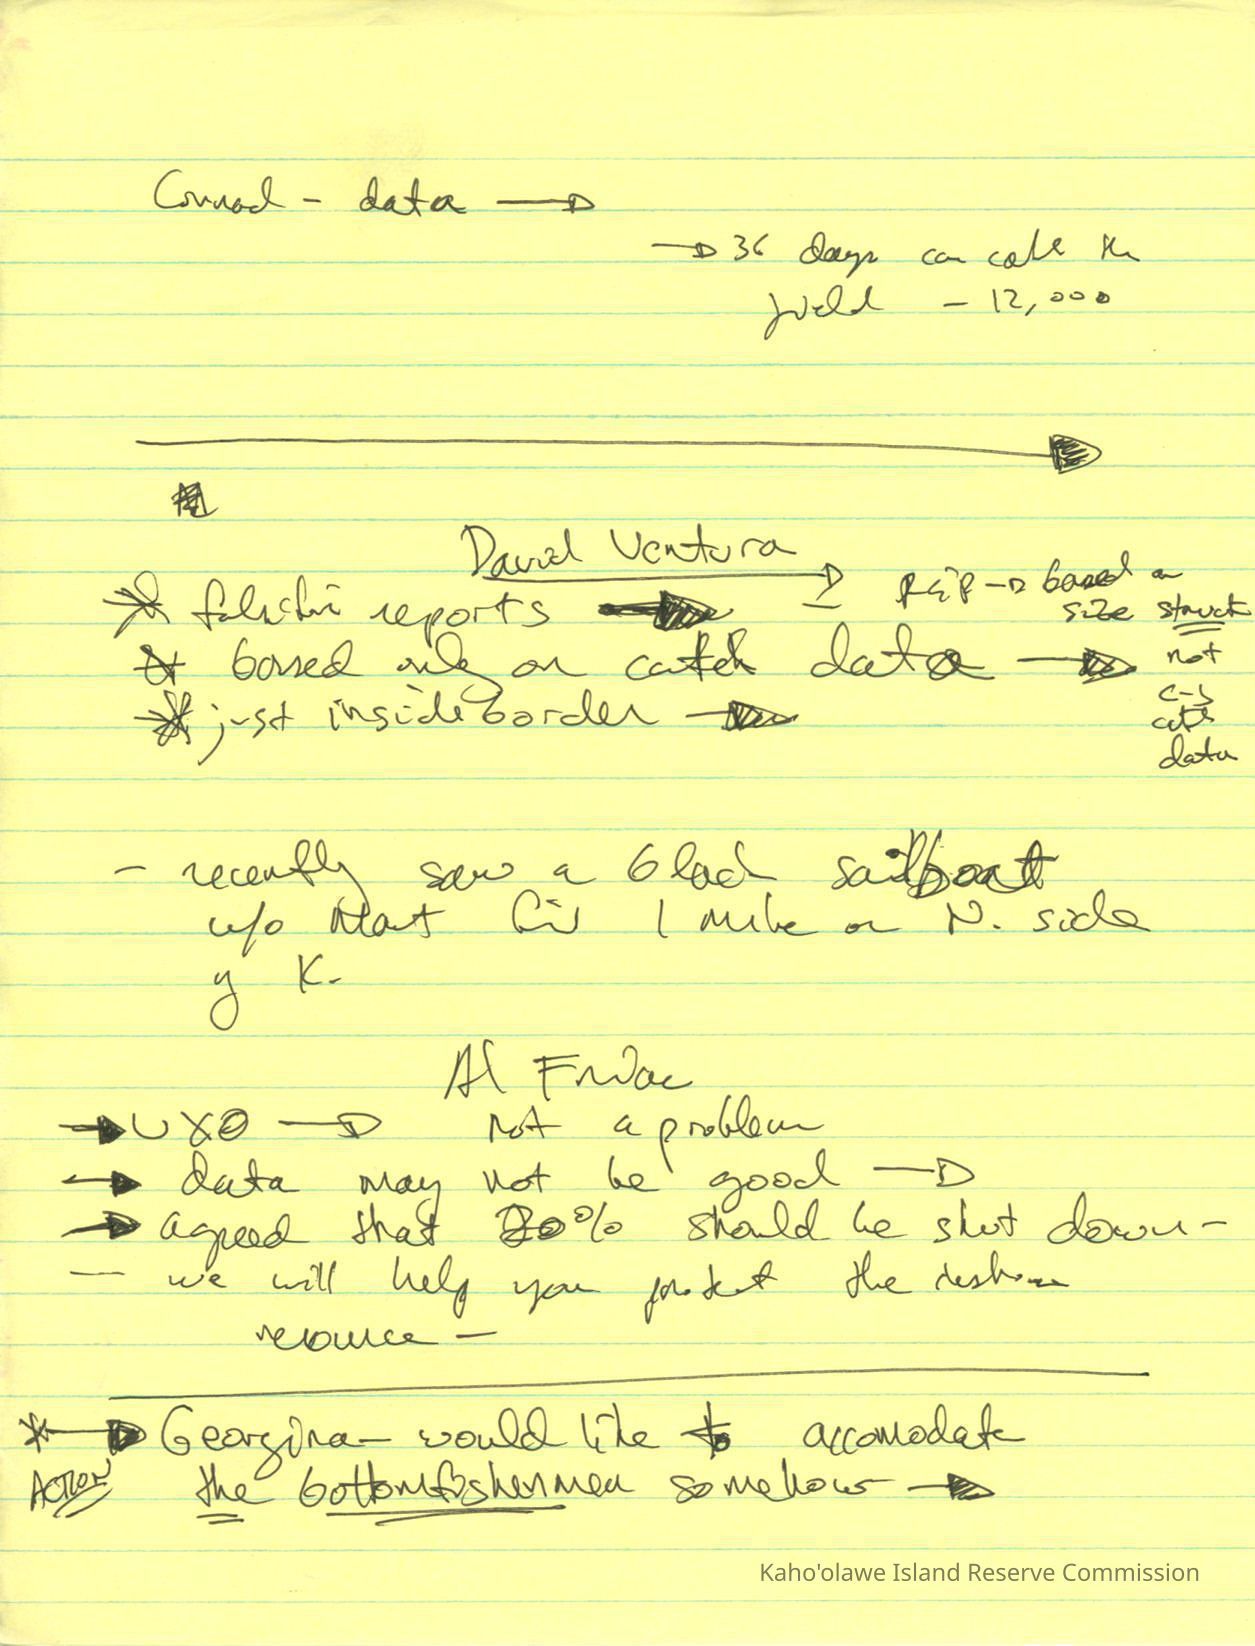 Conrad - data →
→ 36 days can catch the
yield - 12,000
David Ventura
reports
→ based on
size struct
not
data
based only on catch data →
just inside border →
- recently saw a black sailboat
w/o Mast 1 mile on N. side
of K.
Al
→ UXO → not a problem
→ data may not be good →
→ agreed that 20% should be shut down -
- we will help you protect the
resource -
* → Georgina - would like to accomodate
ACTION the bottomfishermen somehow →
Kaho'olawe Island Reserve Commission